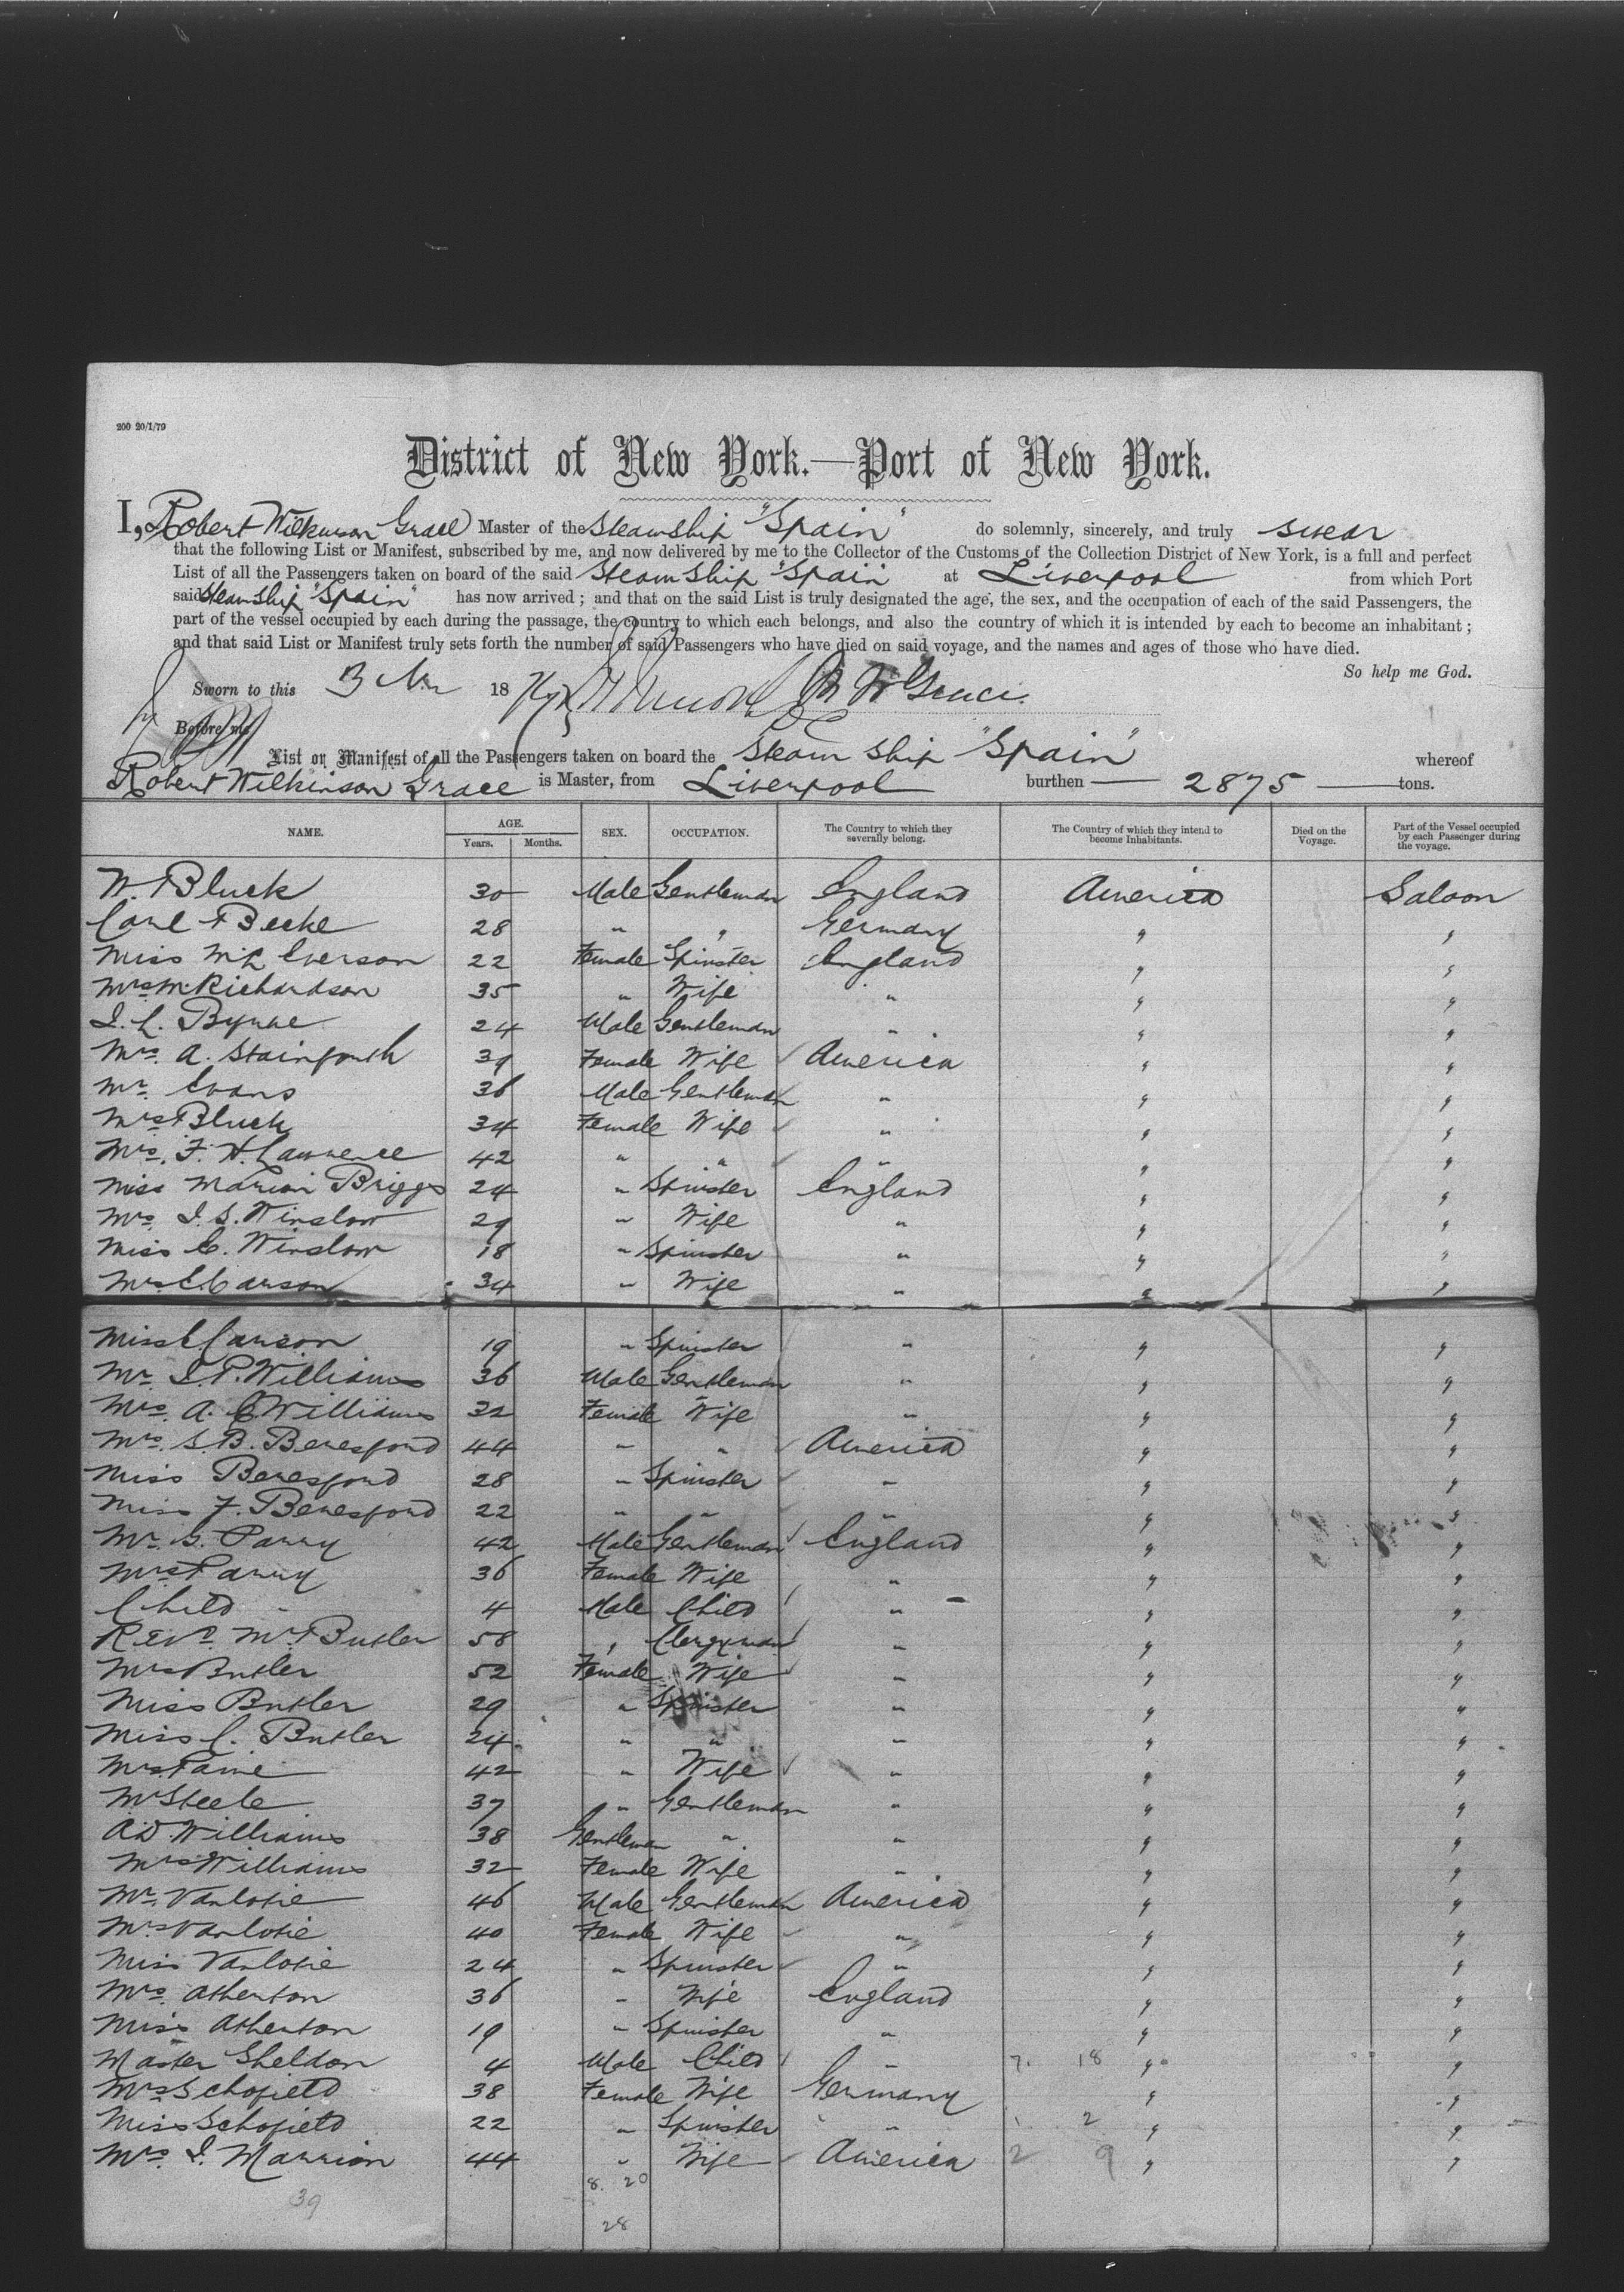 200 20/1/79
District of New York.—Port of New York.
I, Robert Wilkinson Grace Master of the Steamship "Spain" do solemnly, sincerely, and truly swear
that the following List or Manifest, subscribed by me, and now delivered by me to the Collector of the Customs of the Collection District of New York, is a full and perfect
List of all the Passengers taken on board of the said Steam Ship "Spain" at Liverpool from which Port
said Steam Ship "Spain" has now arrived; and that on the said List is truly designated the age, the sex, and the occupation of each of the said Passengers, the
part of the vessel occupied by each during the passage, the country to which each belongs, and also the country of which it is intended by each to become an inhabitant;
and that said List or Manifest truly sets forth the number of said Passengers who have died on said voyage, and the names and ages of those who have died.
So help me God.
Sworn to this 18
Before me
List or Manifest of all the Passengers taken on board the Steam Ship "Spain" whereof
Robert Wilkinson Grace is Master, from Liverpool burthen — 2875 — tons.
NAME. AGE. Years. Months. SEX. OCCUPATION. The Country to which they severally belong. The Country of which they intend to become Inhabitants. Died on the Voyage. Part of the Vessel occupied by each Passenger during the voyage.
W. Bluck 30 Male Gentleman England America Saloon
Carl Becke 28 " " Germany " "
Miss M L Everson 22 Female Spinster England " "
Mrs M Richardson 35 " Wife " " "
J. L. Byrne 24 Male Gentleman " " "
Mrs. A. Stainforth 39 Female Wife America " "
Mr. Evans 36 Male Gentleman " " "
Mrs Bluck 34 Female Wife " " "
Mrs. F. H. Lawrence 42 " " " " "
Miss Marion Briggs 24 " Spinster England " "
Mrs. J. S. Winslow 29 " Wife " " "
Miss C. Winslow 18 " Spinster " " "
Mrs C. Carson 34 " Wife " " "
Miss C Carson 19 " Spinster " " "
Mr. J. P. Williams 36 Male Gentleman " " "
Mrs. A. C Williams 32 Female Wife " " "
Mrs. S. B. Beresford 44 " " America " "
Miss Beresford 28 " Spinster " " "
Miss F. Beresford 22 " " " " "
Mr. G. Parry 42 Male Gentleman England " "
Mrs Parry 36 Female Wife " " "
Child 4 Male Child " " "
Revd. Mr. Butler 58 " Clergyman " " "
Mrs Butler 52 Female Wife " " "
Miss Butler 29 " Spinster " " "
Miss C. Butler 24 " " " " "
Mrs Paine 42 " Wife " " "
Mr Steele 37 " Gentleman " " "
A D. Williams 38 Gentleman " " " "
Mrs Williams 32 Female Wife " " "
Mr. Vanlosie 46 Male Gentleman America " "
Mrs. Vanlosie 40 Female Wife " " "
Miss Vanlosie 24 " Spinster " " "
Mrs. Atherton 36 " Wife England " "
Miss Atherton 19 " Spinster " " "
Master Sheldon 4 Male Child " 7. 18 " "
Mrs Schofield 38 Female Wife Germany " "
Miss Schofield 22 " Spinster " 1 2 " "
Mrs. J. Marrion 44 " Wife America 2 9 " "
8. 20
39
28